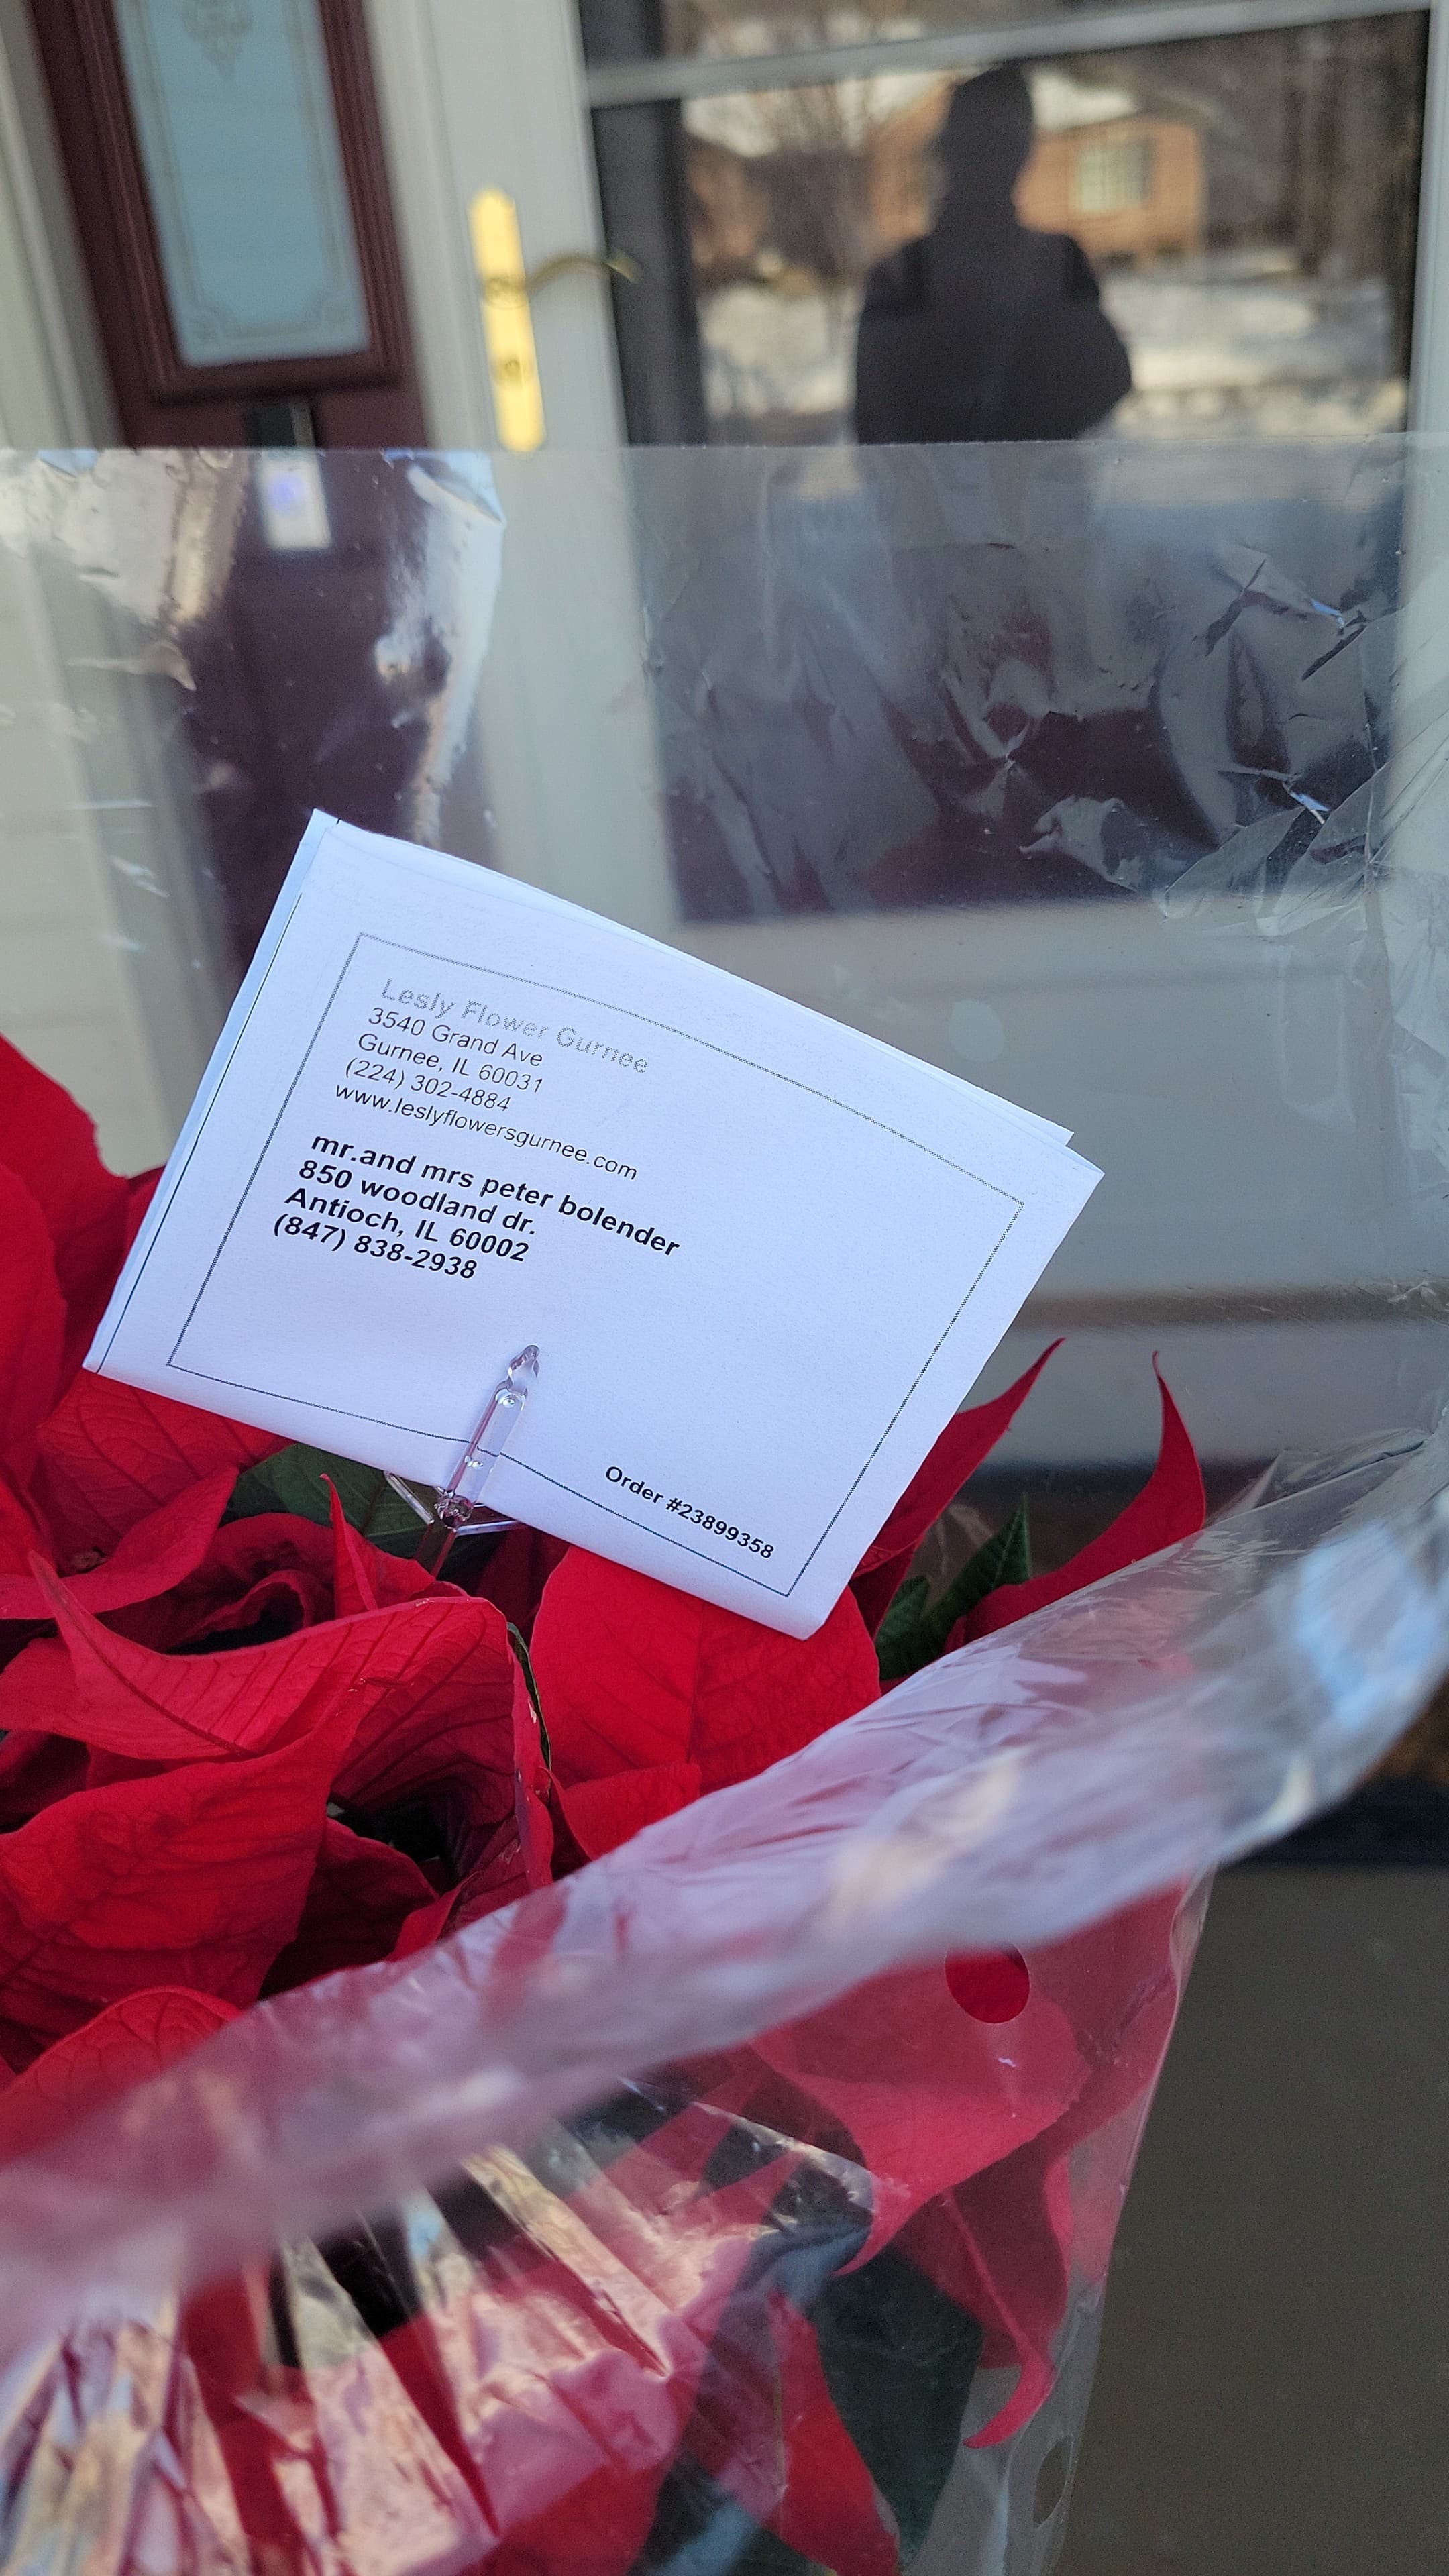 Lesly Flower Gurnee
3540 Grand Ave
Gurnee, IL 60031
(224) 302-4884
www.leslyflowersgurnee.com
mr.and mrs peter bolender
850 woodland dr.
Antioch, IL 60002
(847) 838-2938
Order #23899358